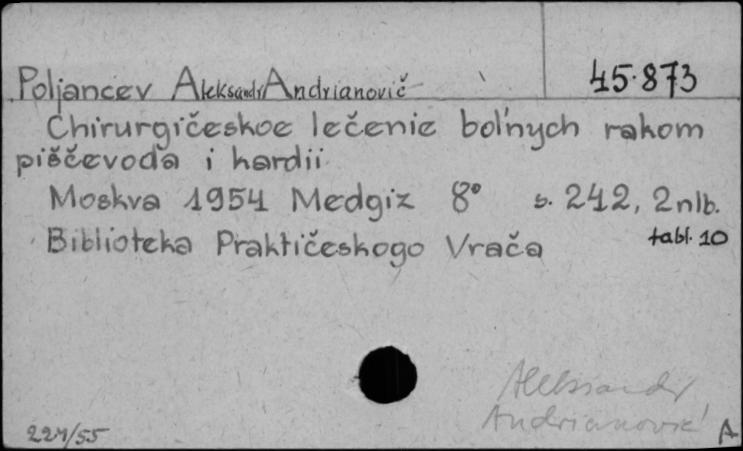 Poljancev Aleksandr Andrianovič 45.873
Chirurgičeskoe lečenie bol'nych rakom
piščevoda i kardii
Moskva 1954 Medgiz 8° s. 242, 2nlb.
Biblioteka Praktičeskogo Vrača tabl. 10
Aleksandr
Andrianovič
224/55 A